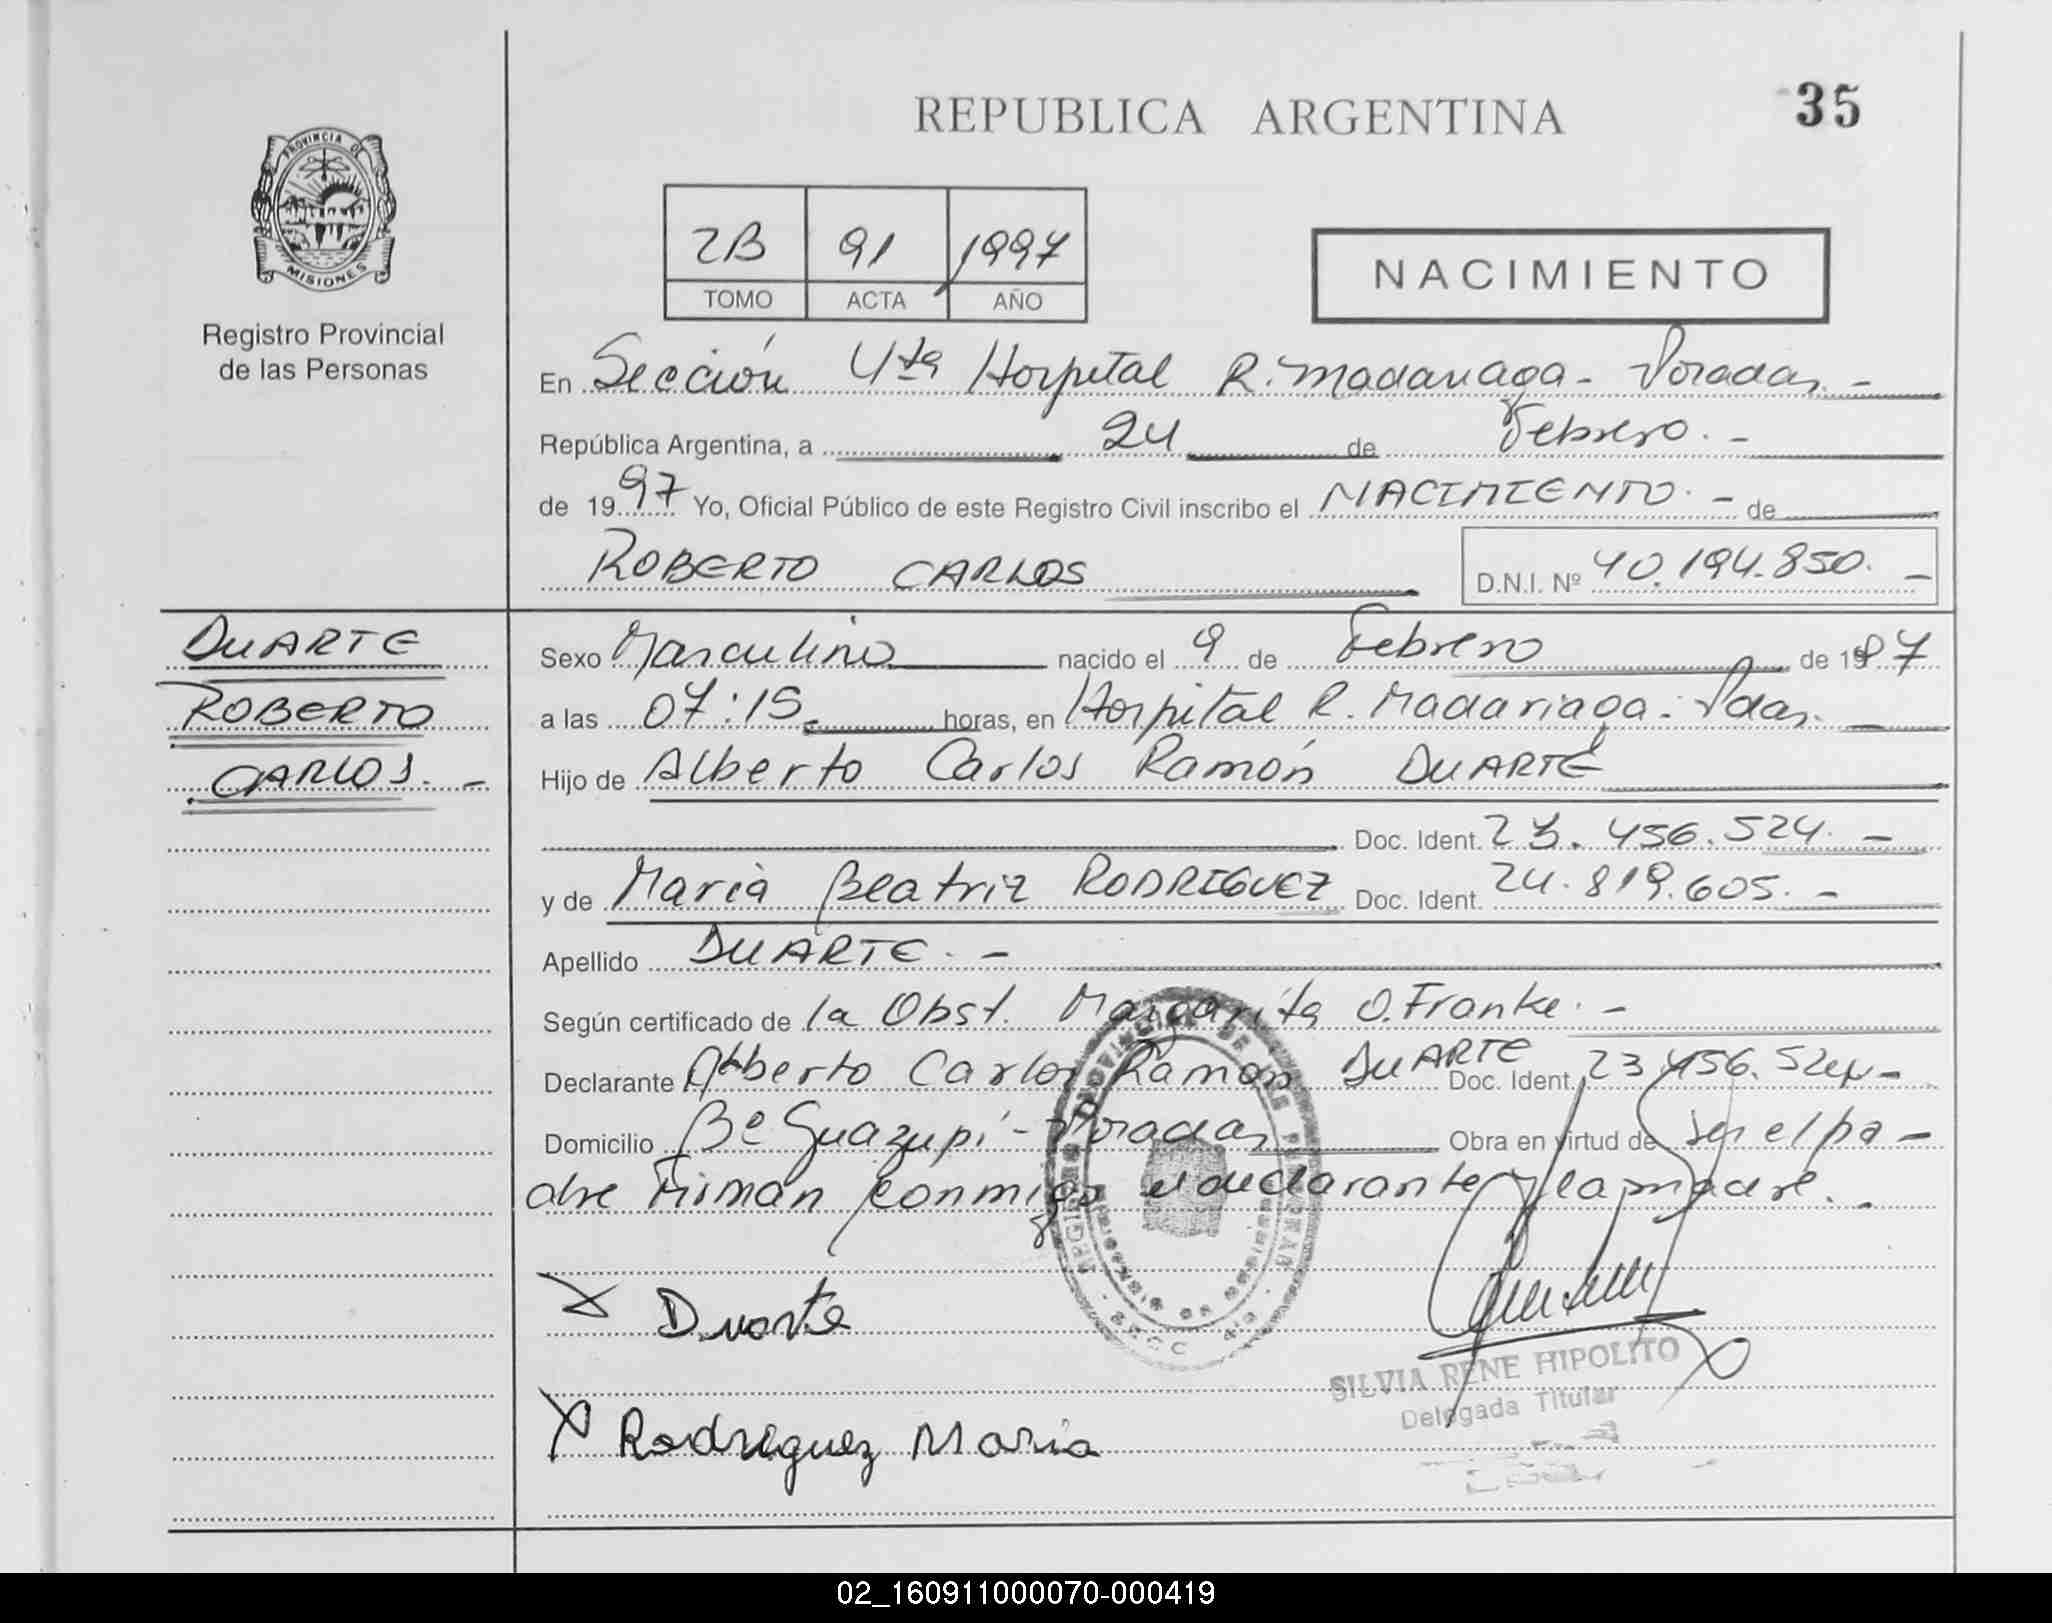 REPUBLICA ARGENTINA
35
PROVINCIA DE
MISIONES
Registro Provincial
de las Personas
2B 91 1997
TOMO ACTA AÑO
NACIMIENTO
En Sección 4ta Hospital R. Madariaga - Posadas. -
República Argentina, a 24 de Febrero. -
de 1997 Yo, Oficial Público de este Registro Civil inscribo el NACIMIENTO. - de
ROBERTO CARLOS D.N.I. Nº 40.194.850. -
DUARTE
ROBERTO
CARLOS. -
Sexo Masculino nacido el 9 de Febrero de 1997
a las 07:15 horas, en Hospital R. Madariaga. Pdas. -
Hijo de Alberto Carlos Ramón DUARTE
Doc. Ident. 23.456.524. -
y de María Beatriz RODRIGUEZ Doc. Ident. 24.819.605. -
Apellido DUARTE. -
Según certificado de la Obst. Margarita O. Franke. -
Declarante Alberto Carlos Ramón DUARTE Doc. Ident. 23.456.524 -
Domicilio Bº Guazupi - Posadas Obra en virtud de ser el pa-
dre Firman conmigo el declarante y la madre. -
Duarte
Rodriguez Maria
SILVIA RENE HIPOLITO
Delegada Titular
02_160911000070-000419